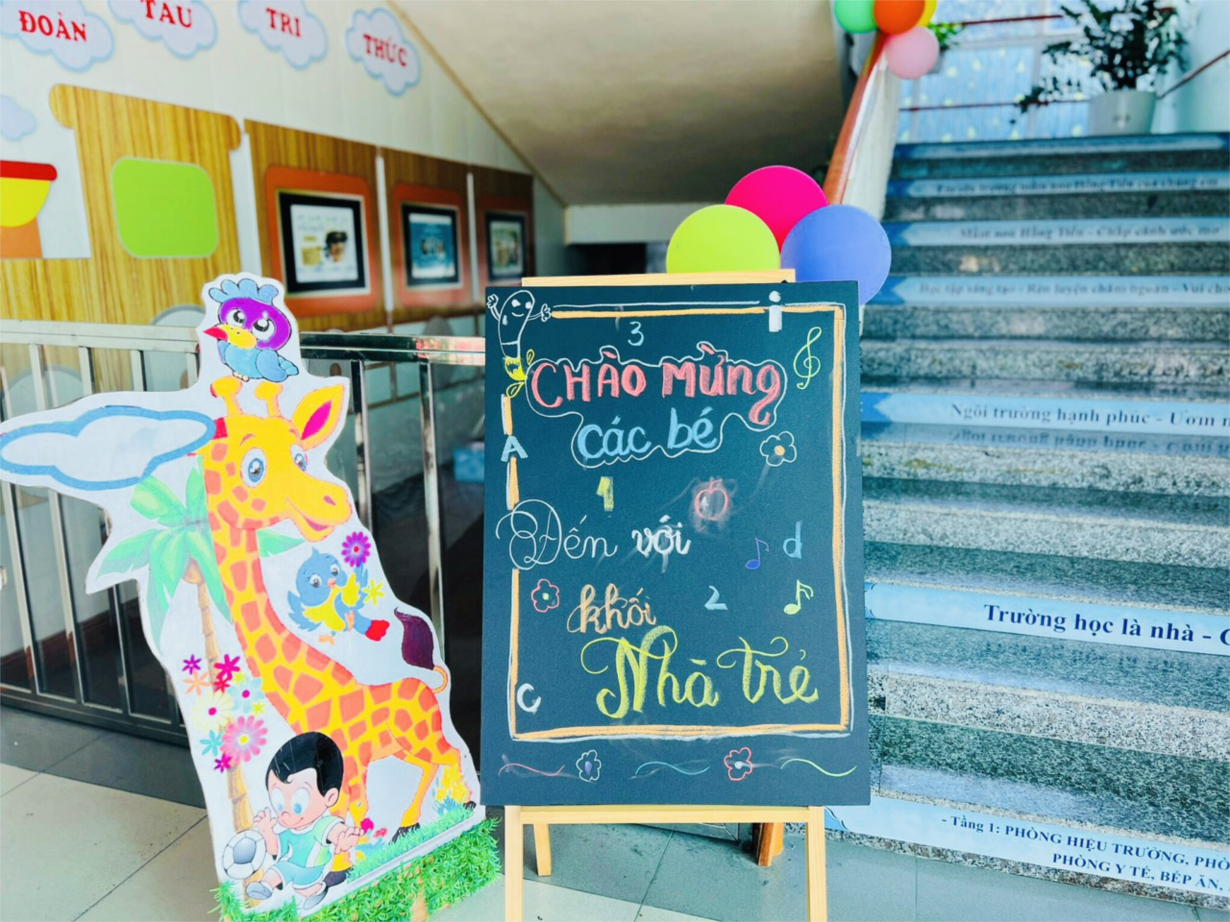 ĐOÀN
TAU
TRI
THỨC
3
CHÀO MỪNG
các bé
A
1
Đến với
d
khối
2
Nhà trẻ
C
Mầm non Hồng Tiến - Chắp cánh ước mơ
Ngôi trường hạnh phúc - Ươm
Trường học là nhà -
- Tầng 1: PHÒNG HIỆU TRƯỞNG,
PHÒNG Y TẾ, BẾP ĂN,